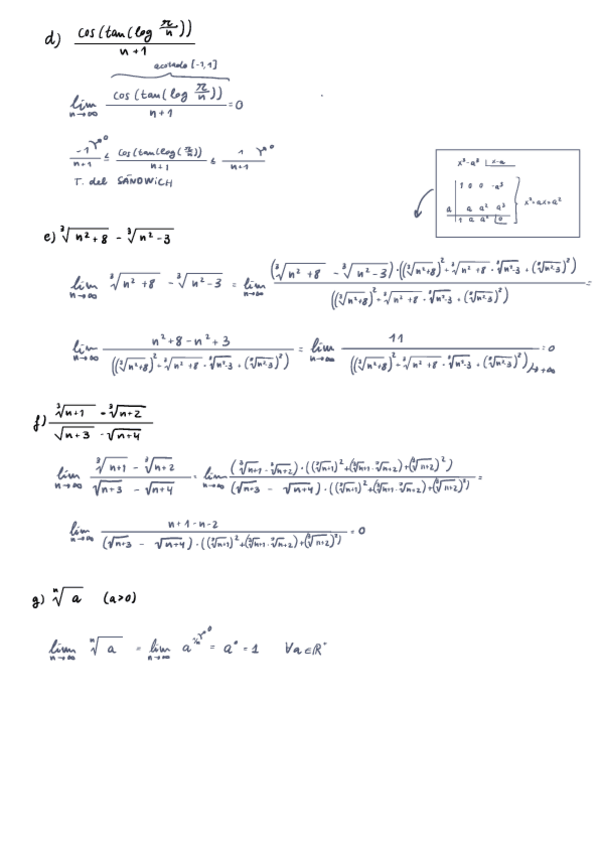 d) cos(tan(log π/n)) / n+1
acotado [-1,1]
lim n→∞ cos(tan(log π/n)) / n+1 = 0
-1/n+1 →0 ≤ cos(tan(log(π/n))) / n+1 ≤ 1/n+1 →0
T. del SÁNDWICH
x³-a³ | x-a
1 0 0 -a³
a a a² a³
1 a a² 0
x²+ax+a²
e) ∛n²+8 - ∛n²-3
lim n→∞ ∛n²+8 - ∛n²-3 = lim n→∞ (∛n²+8 - ∛n²-3)·((∛n²+8)² + ∛n²+8 · ∛n²-3 + (∛n²-3)²) / ((∛n²+8)² + ∛n²+8 · ∛n²-3 + (∛n²-3)²) =
lim n→∞ n²+8-n²+3 / ((∛n²+8)² + ∛n²+8 · ∛n²-3 + (∛n²-3)²) = lim n→∞ 11 / ((∛n²+8)² + ∛n²+8 · ∛n²-3 + (∛n²-3)²) →+∞ = 0
f) ∛n+1 - ∛n+2 / √n+3 - √n+4
lim n→∞ ∛n+1 - ∛n+2 / √n+3 - √n+4 = lim n→∞ (∛n+1 - ∛n+2)·((∛n+1)²+(∛n+1·∛n+2)+(∛n+2)²) / (√n+3 - √n+4)·((∛n+1)²+(∛n+1·∛n+2)+(∛n+2)²) =
lim n→∞ n+1-n-2 / (√n+3 - √n+4)·((∛n+1)²+(∛n+1·∛n+2)+(∛n+2)²) = 0
g) ⁿ√a (a>0)
lim n→∞ ⁿ√a = lim n→∞ a^1/n →0 = a⁰ = 1 ∀a∈ℝ⁺